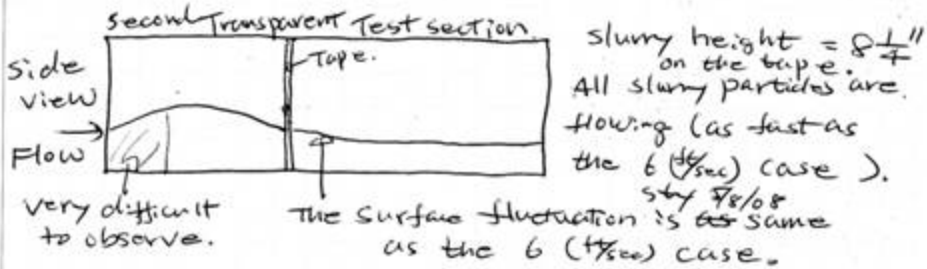 Second Transparent Test section.
Tape.
Side
view
Flow
very difficult
to observe.
The surface fluctuation is same
as the 6 (ft/sec) case.
Slurry height = 8 1/4"
on the tape.
All slurry particles are
flowing (as fast as
the 6 (ft/sec) case).
8/08